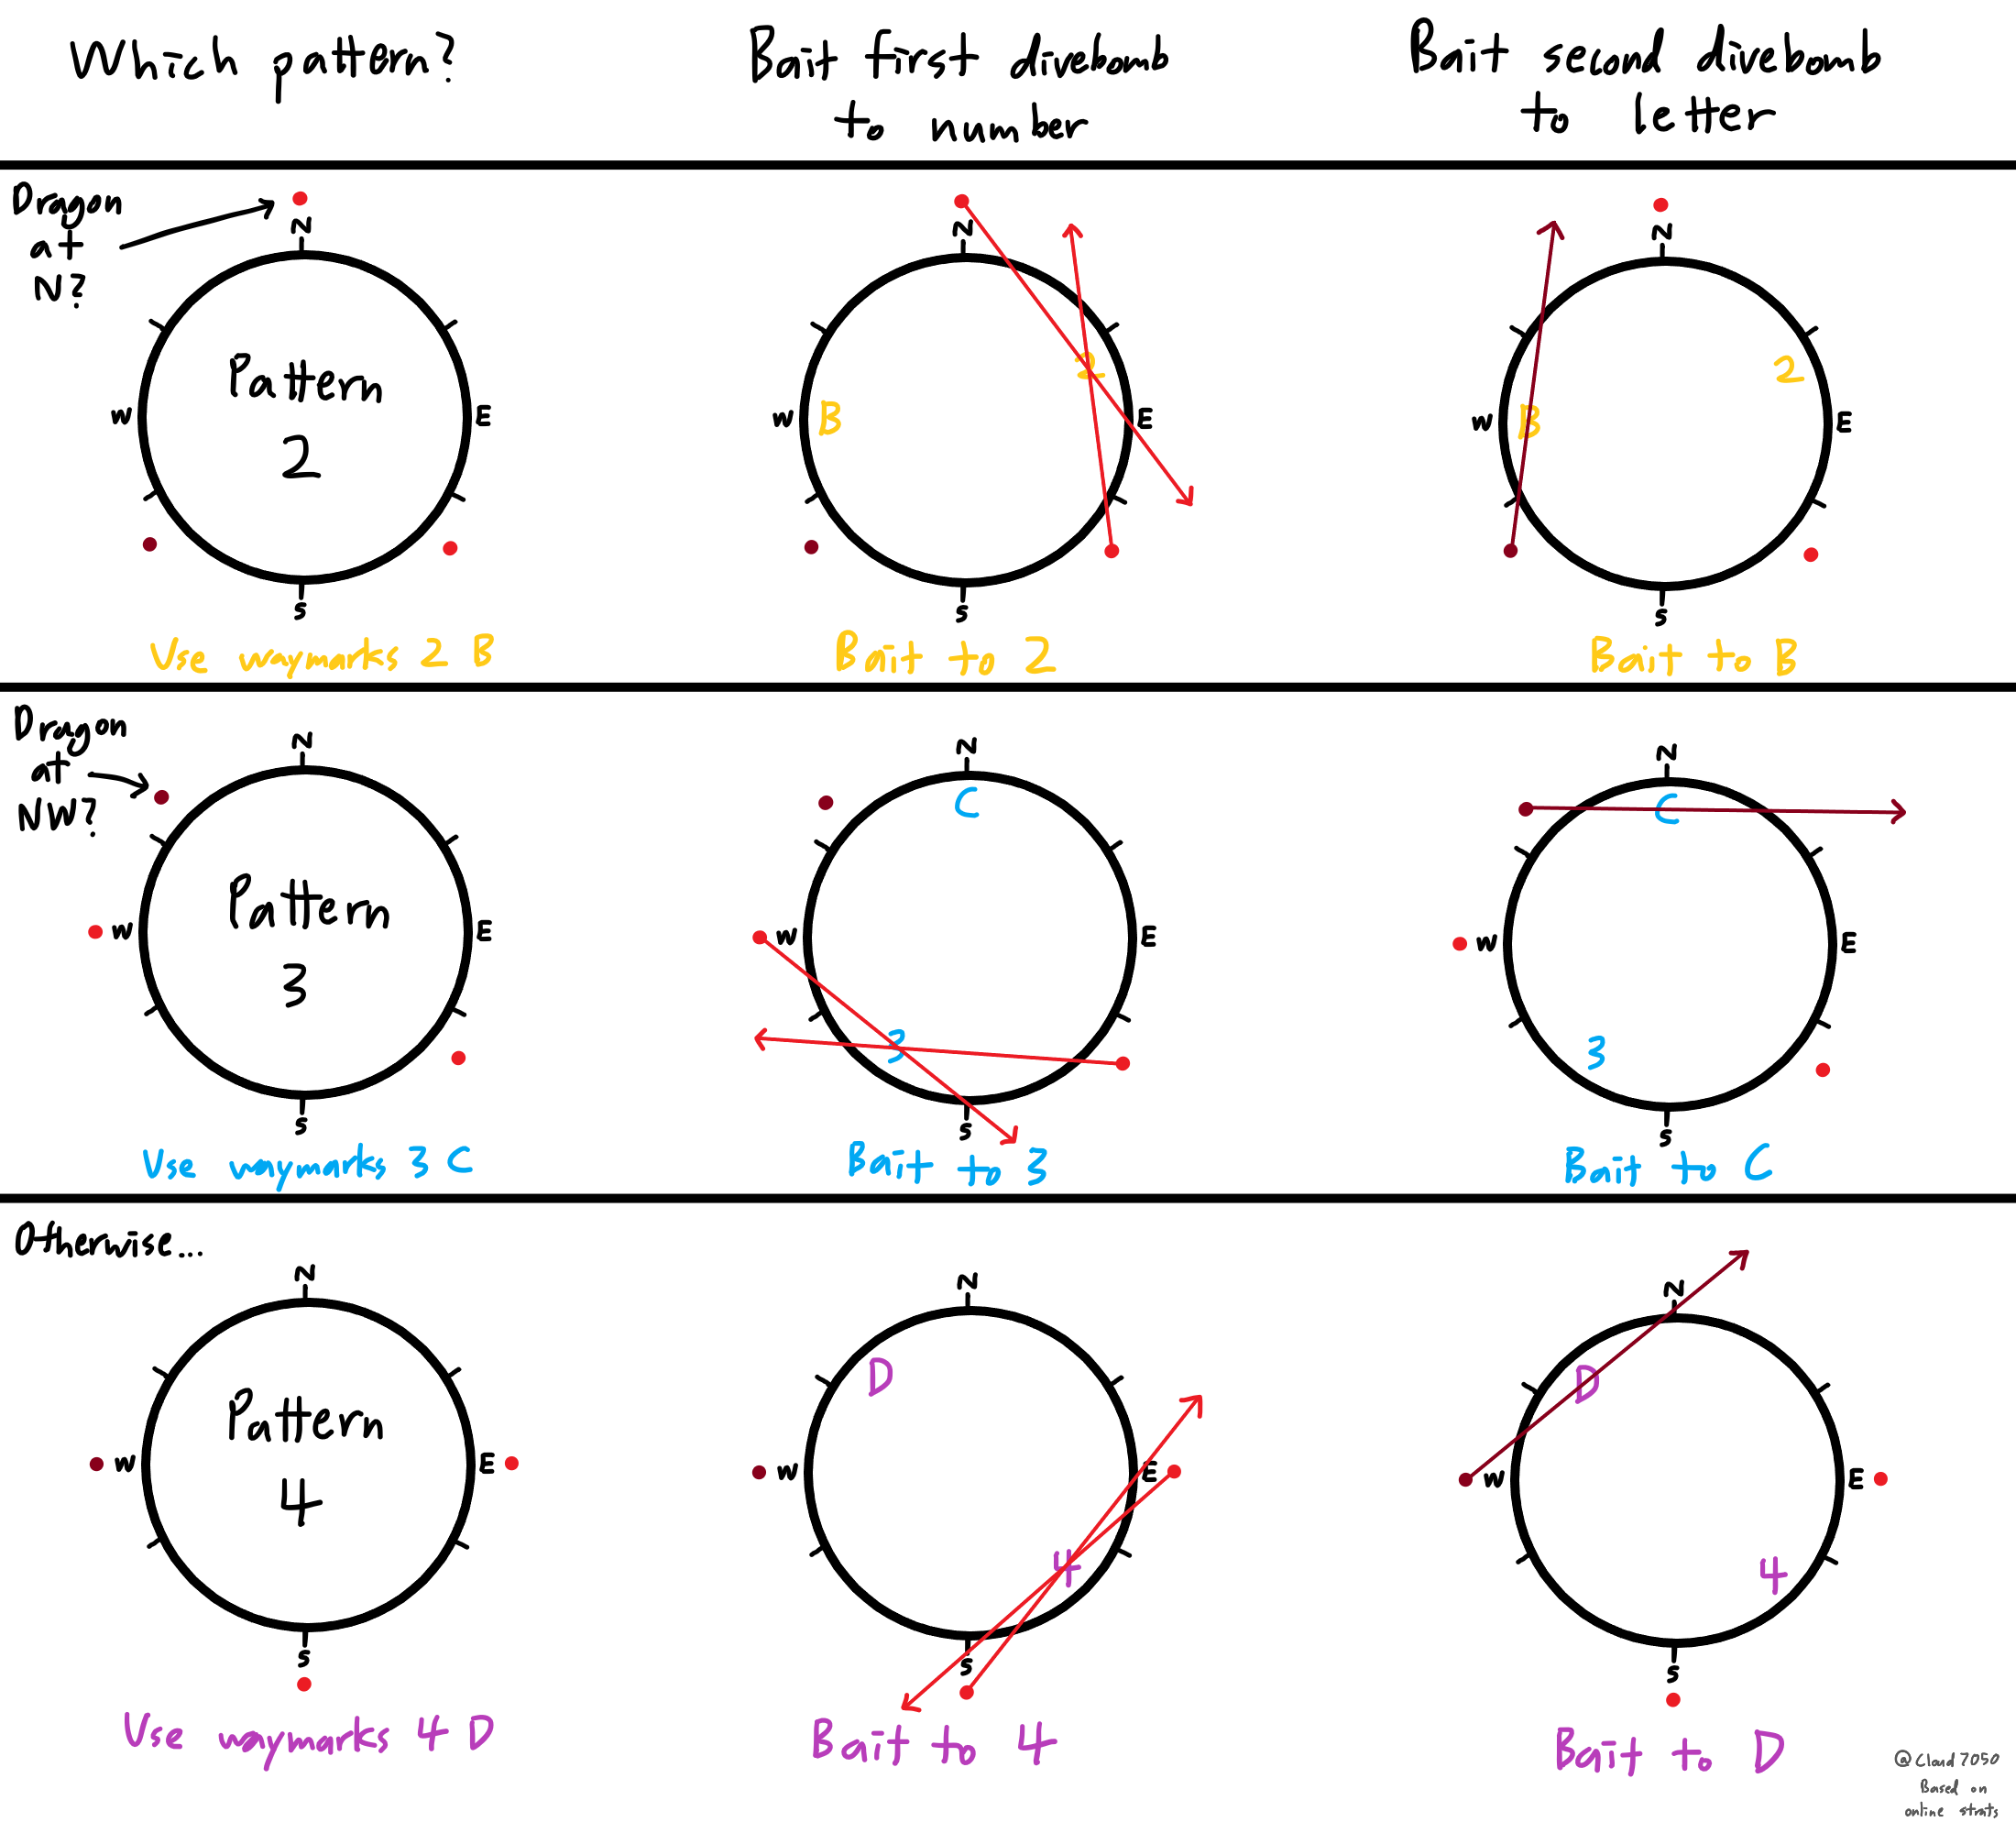 Which pattern?
Bait first divebomb
to number
Bait second divebomb
to letter
Dragon
at
N?
N
W
E
S
Pattern
2
Use waymarks 2 B
N
W
E
S
B
2
Bait to 2
N
W
E
S
B
2
Bait to B
Dragon
at
NW?
N
W
E
S
Pattern
3
Use waymarks 3 C
N
C
W
E
3
S
Bait to 3
N
C
W
E
3
S
Bait to C
Otherwise...
N
W
E
S
Pattern
4
Use waymarks 4 D
N
D
W
E
4
S
Bait to 4
N
D
W
E
4
S
Bait to D
@Cloud7050
Based on
online strats